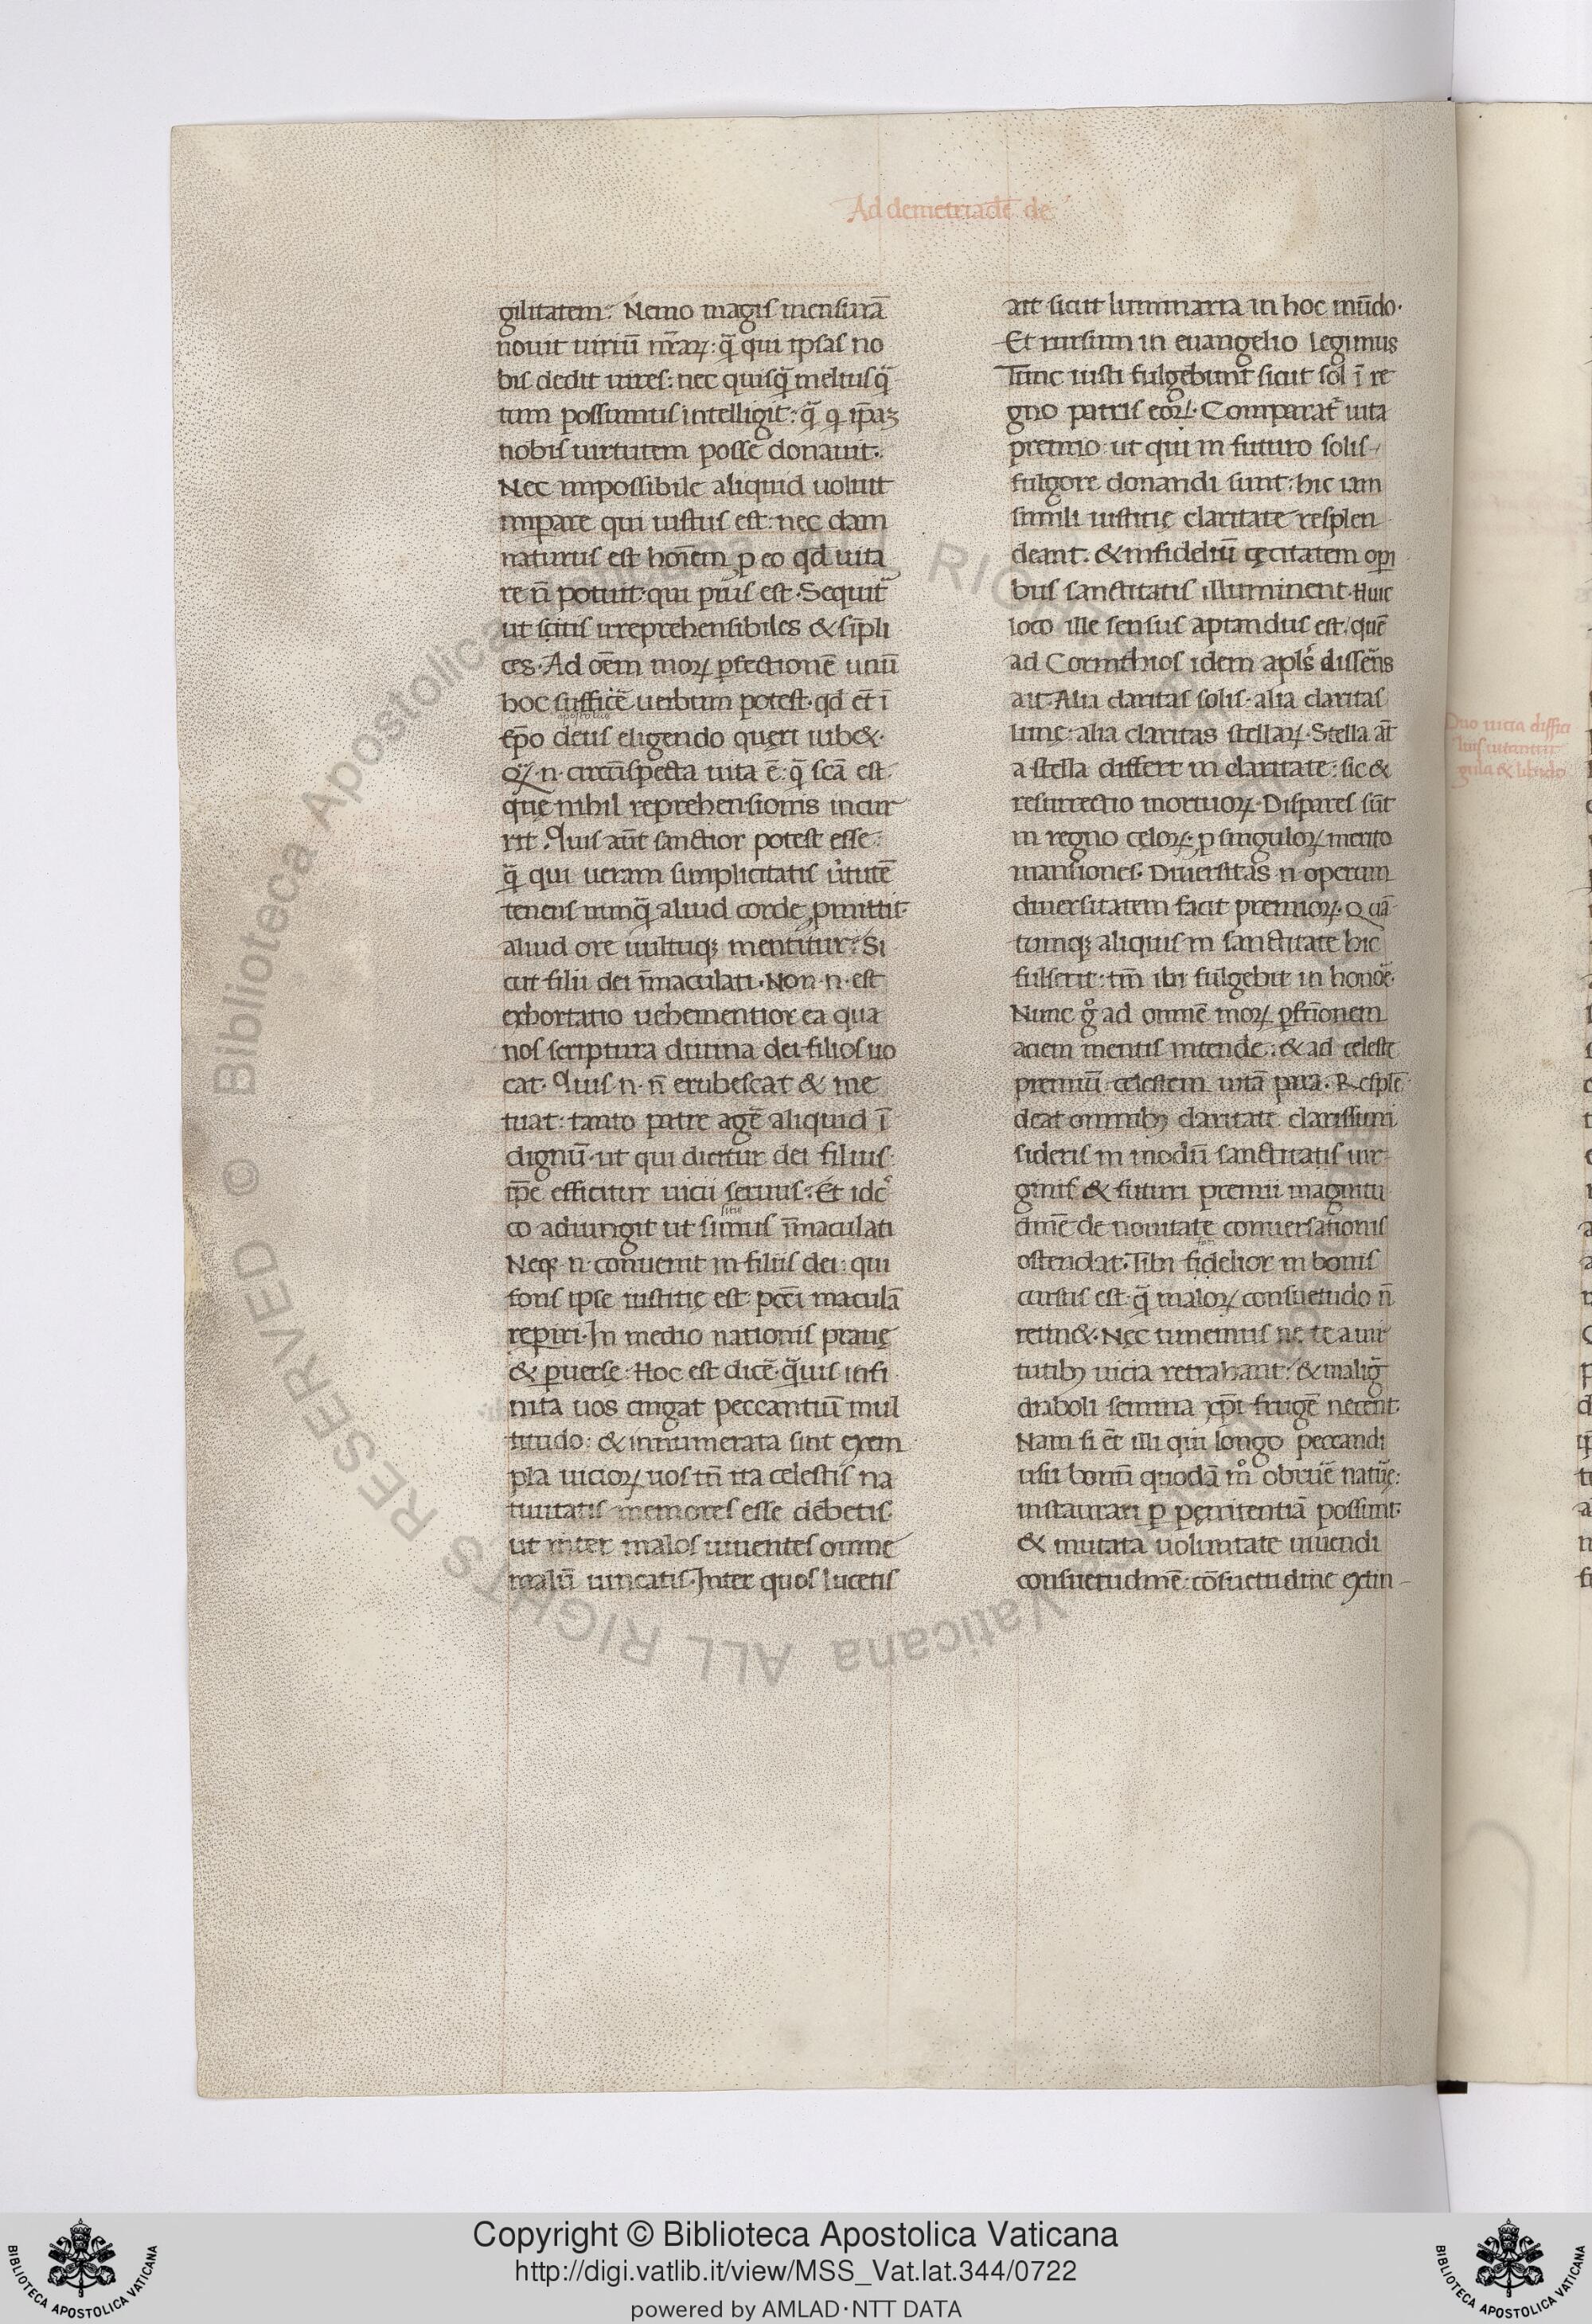 Ad demetriadē de
gilitatem. Nemo magis mensurā
nouit uiriū nr̄aꝝ: q̄ qui ipsas no
bis dedit uires: nec quisq̄ melius q̄
tum possumus intelligit: q̄ q ip̄aꝫ
nobis uirtutem posse donauit.
Nec impossibile aliquid uoluit
impare qui iustus est: nec dam
naturus est hoīem ꝓ eo qd uita
re n̄ potuit: qui pius est. Sequit᷑
ut scitis irreprehensibiles & sīpli
ces. Ad oēm moꝝ ꝑfectionē unū
hoc sufficē uerbum potest. qd et̄ ī
apostolus
ep̄o deus eligendo queri iub&.
Qͣ n. circūspecta uita ē: q̄ scā est.
quę nihil reprehensionis incur
rit. Quis aūt sanctior potest esse:
q̄ qui ueram simplicitatis u̓tutē
tenens nunq̄ aliud corde ꝓmittit.
aliud ore uultuqꝫ mentitur. Si
cut filii dei īmaculati. Non n. est
exhortatio uehementior ea qua
nos scriptura diuina dei filios uo
cat. Quis n. n̄ erubescat & me
tuat: tanto patre agē aliquid ī
dignū. ut qui dicitur dei filius.
ip̄e efficitur uicii seruus. Et idc̓
sitis
co adiungit ut simus īmaculati
Neqꝫ n. conuenit in filiis dei: qui
fons ipse iustitię est. pcc̄i maculā
reperiri. In medio nationis prauę
& ꝑuerse. Hoc est dicē. q̄uis infi
nita uos cingat peccantiū mul
titudo: & innumerata sint exem
pla uicioꝝ uos tn̄ ita celestis na
tiuitatis memores esse debetis.
ut inter malos uiuentes omne
malū uincatis. Inter quos lucetis
ait sicut luminaria in hoc mūdo.
Et rursum in euangelio legimus
Tunc iusti fulgebunt sicut sol ī re
gno patris eoꝝ. Comparat᷑ uita
premio: ut qui in futuro solis
fulgore donandi sunt: hic iam
simili iustitię claritate resplen
deant. & infideliū cęcitatem opi
bus sanctitatis illuminent. Huic
loco ille sensus aptandus est, quē
ad Corinthios idem apls̄ disserēns
ait. Alia claritas solis. alia claritas
lunę: alia claritas stellaꝝ. Stella at̄
a stella differt in claritate: sic &
resurrectio mortuoꝝ. Dispares sūt
in regno cęloꝝ: ꝓ singuloꝝ merito
mansiones. Diuersitas n. operum
diuersitatem facit premioꝝ. Quā
tumqꝫ aliquis in sanctitate hic
fulserit: tm̄ ibi fulgebit in honoē.
Nunc gͦ ad omnē moꝝ ꝑfc̄ionem
aciem mentis intende: & ad celeste
premiū celestem uitā para. Resplē
deat omnibꝫ claritate clarissimi
sideris in modū sanctitatis uir
ginis & futuri premii magnitu
dinē de nouitate conuersationis
ostendat. Tibi fidelior in bonis
cursus est q̄ maloꝝ consuetudo n̄
retin&. Nec timemus ne te a uir
tutibꝫ uicia retrahant. & malig̓
diaboli semina xp̄i frugē necent.
Nam si et̄ illi qui longo peccandi
usu bonū quodā mͦ obruē naturę:
instaurari ꝑ penitentiā possunt.
& mutata uoluntate uiuendi
consuetudinē: cōsuetudine extin
Duo uicia diffici
lius uitantur
gula & libido
Copyright © Biblioteca Apostolica Vaticana
http://digi.vatlib.it/view/MSS_Vat.lat.344/0722
powered by AMLAD·NTT DATA
BIBLIOTECA APOSTOLICA VATICANA
BIBLIOTECA APOSTOLICA VATICANA
© Biblioteca Apostolica Vaticana ALL RIGHTS RESERVED